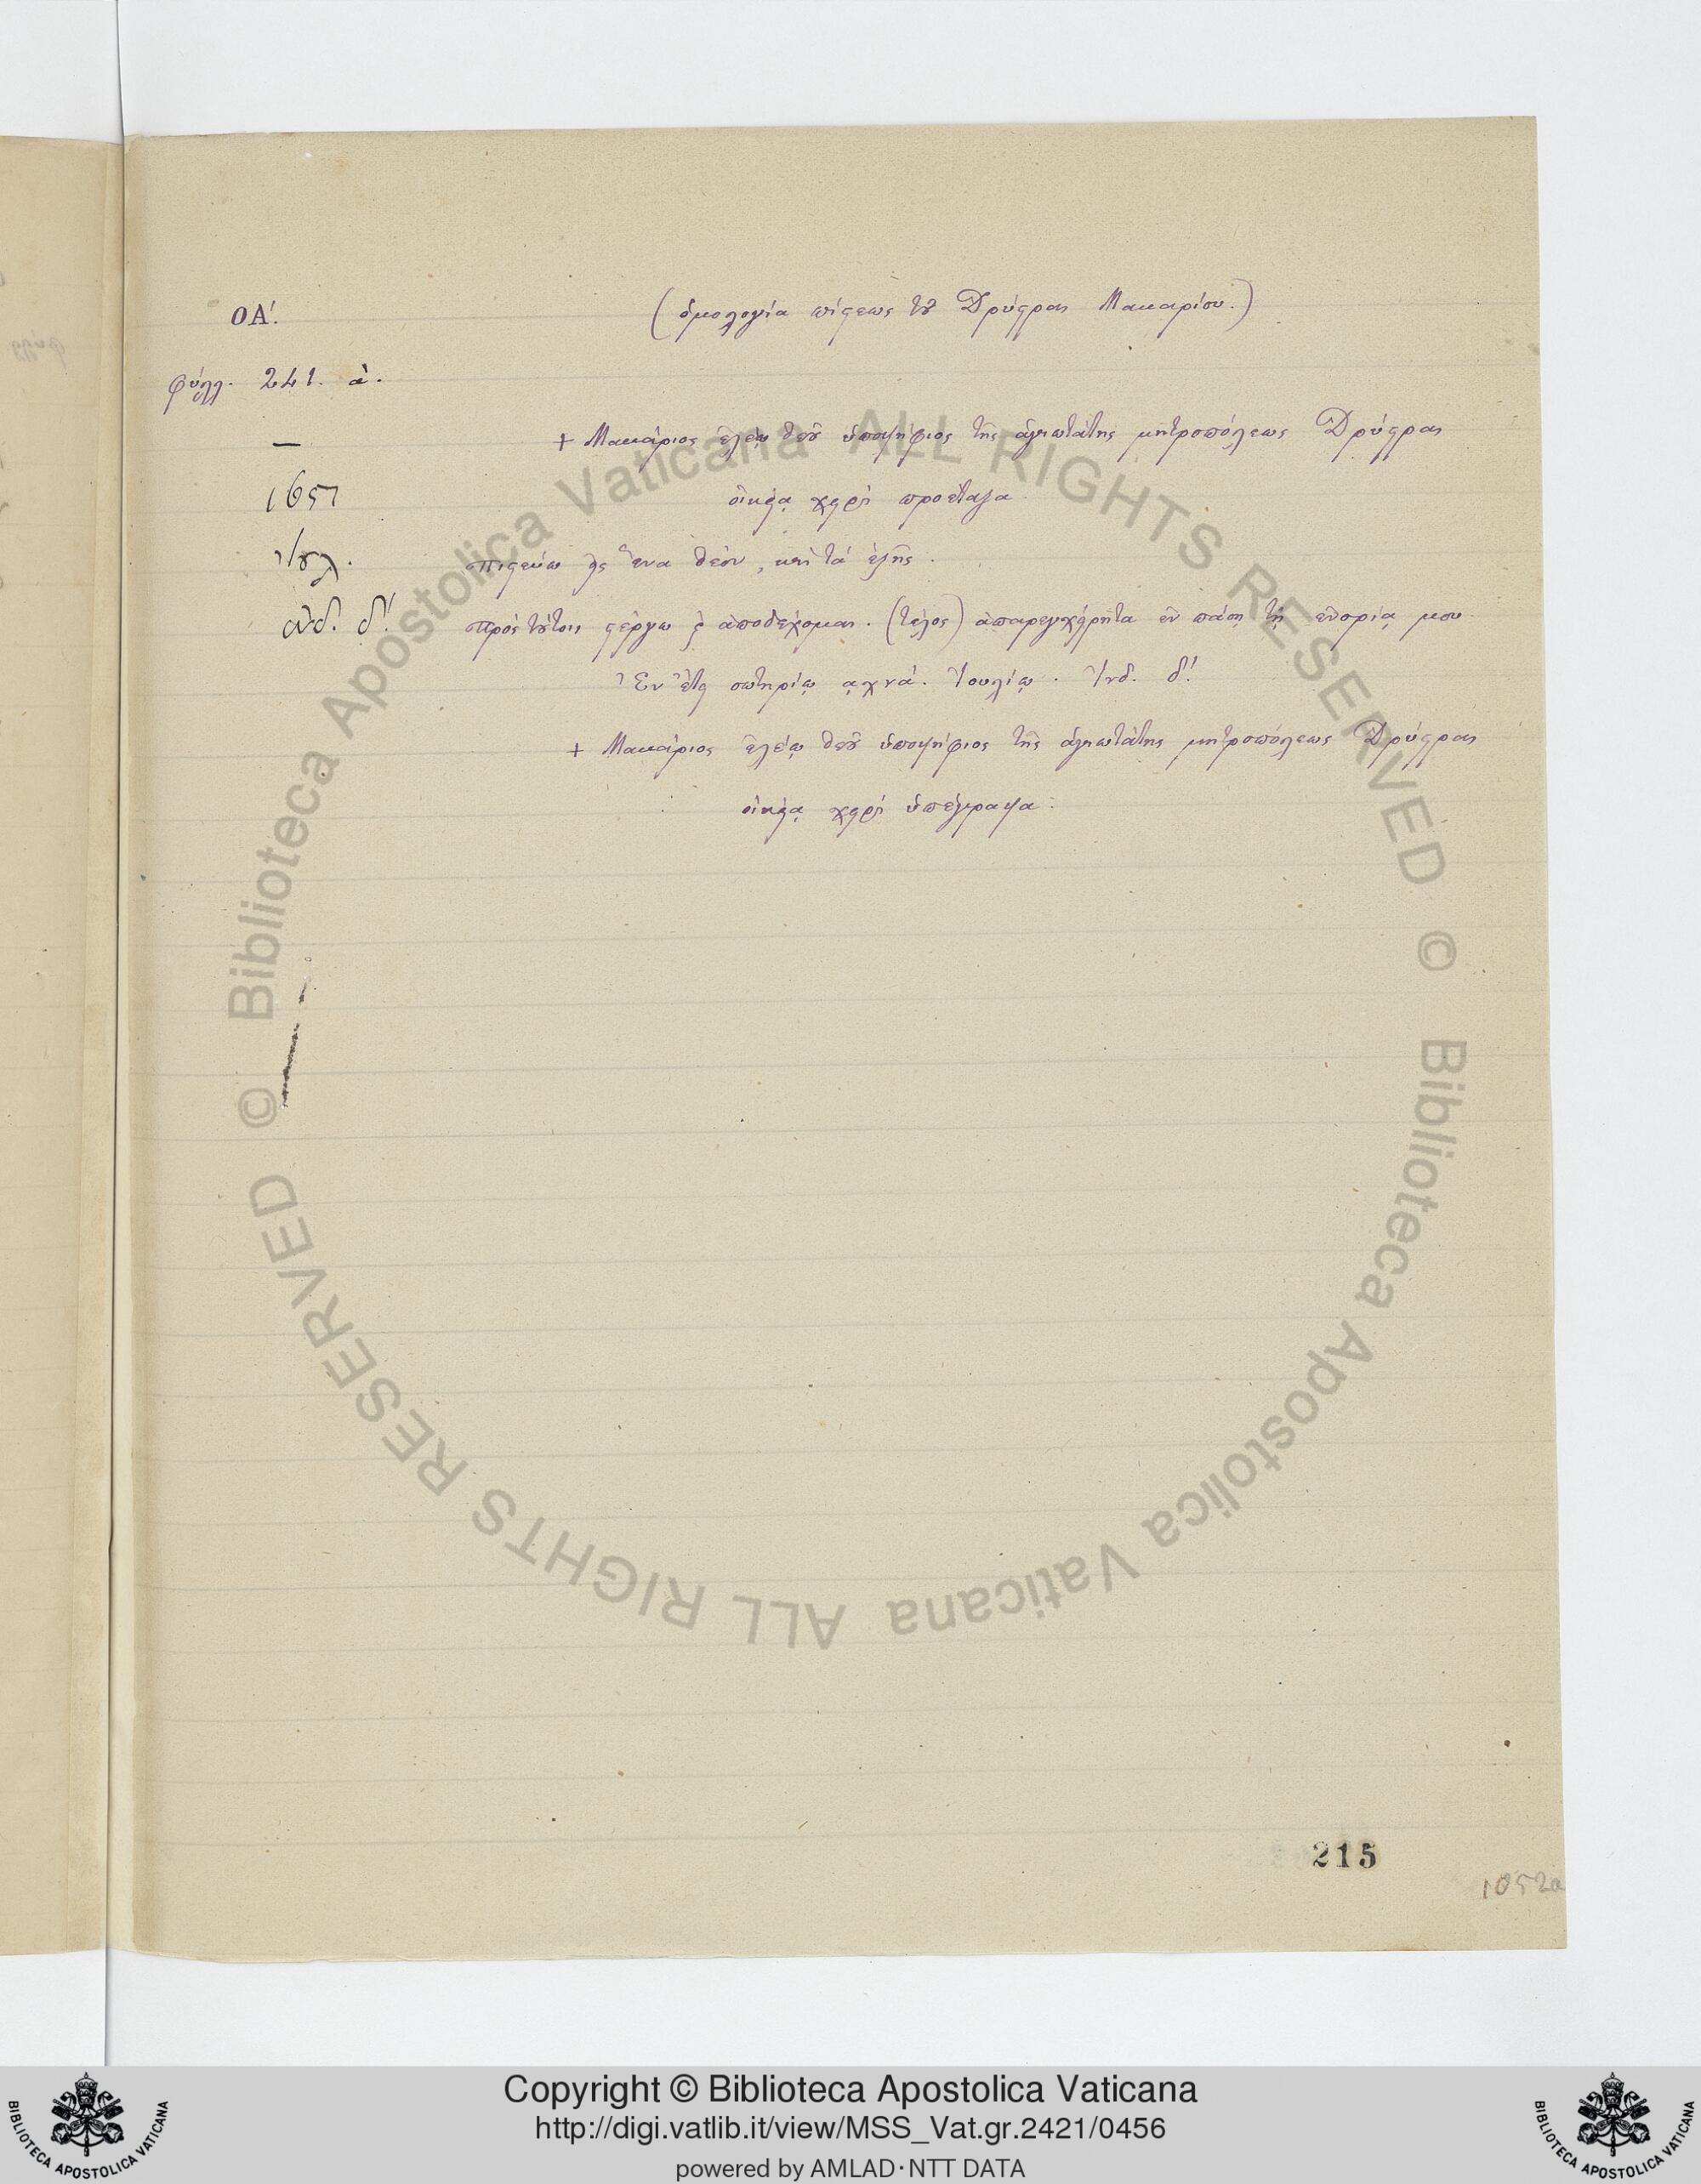 ΟΑ΄. (ὁμολογία πίστεως τοῦ Δρύστρας Μακαρίου.)
φύλλ. 241. α.
+ Μακάριος ἐλέῳ θεοῦ ὑποψήφιος τῆς ἁγιωτάτης μητροπόλεως Δρύστρας
1651 οἰκείᾳ χειρὶ προέταξα.
Ἰουλ. πιστεύω εἰς ἕνα θεόν, καὶ τὰ ἑξῆς.
ἰνδ. δ΄. πρὸς τούτοις στέργω καὶ ἀποδέχομαι. (τέλος) ἀπαρεγχείρητα ἐν πάσῃ τῇ ἐνορίᾳ μου
Ἐν ἔτει σωτηρίῳ ͵αχνά. Ἰουλίῳ. Ἰνδ. δ΄.
+ Μακάριος ἐλέῳ θεοῦ ὑποψήφιος τῆς ἁγιωτάτης μητροπόλεως Δρύστρας
οἰκείᾳ χειρὶ ὑπέγραψα.
215
1052a
© Biblioteca Apostolica Vaticana ALL RIGHTS RESERVED
© Biblioteca Apostolica Vaticana ALL RIGHTS RESERVED
Copyright © Biblioteca Apostolica Vaticana
http://digi.vatlib.it/view/MSS_Vat.gr.2421/0456
powered by AMLAD·NTT DATA
BIBLIOTECA APOSTOLICA VATICANA
BIBLIOTECA APOSTOLICA VATICANA